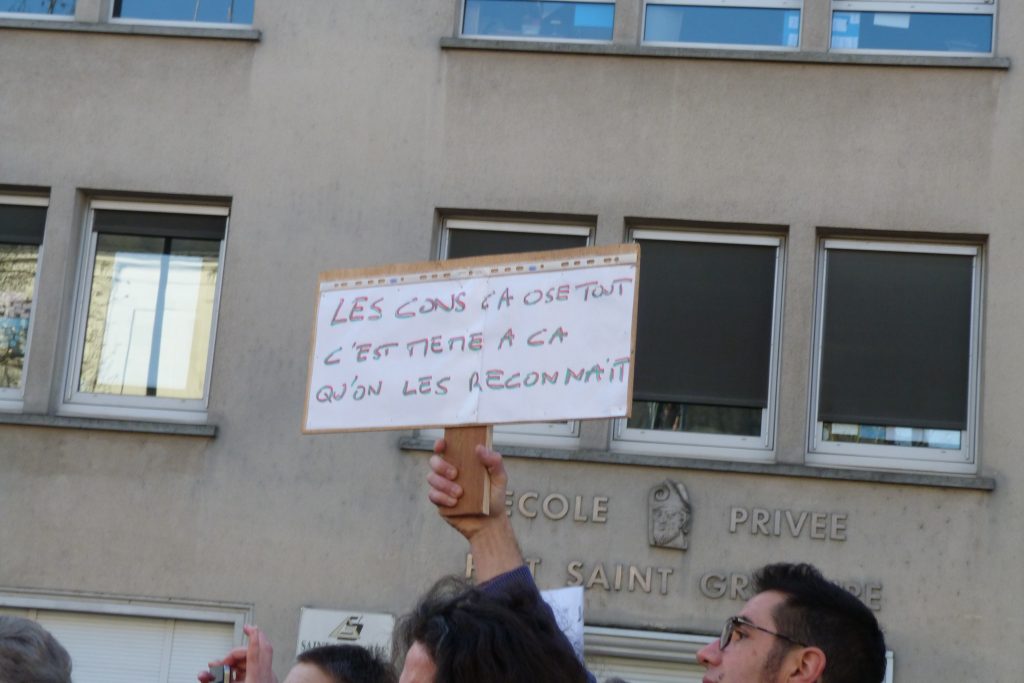 LES CONS ÇA OSE TOUT
C'EST MEME A CA
QU'ON LES RECONNAÎT
ECOLE PRIVEE
SAINT